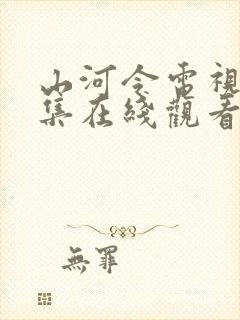 山河令電視
集在綫觀看
無罪